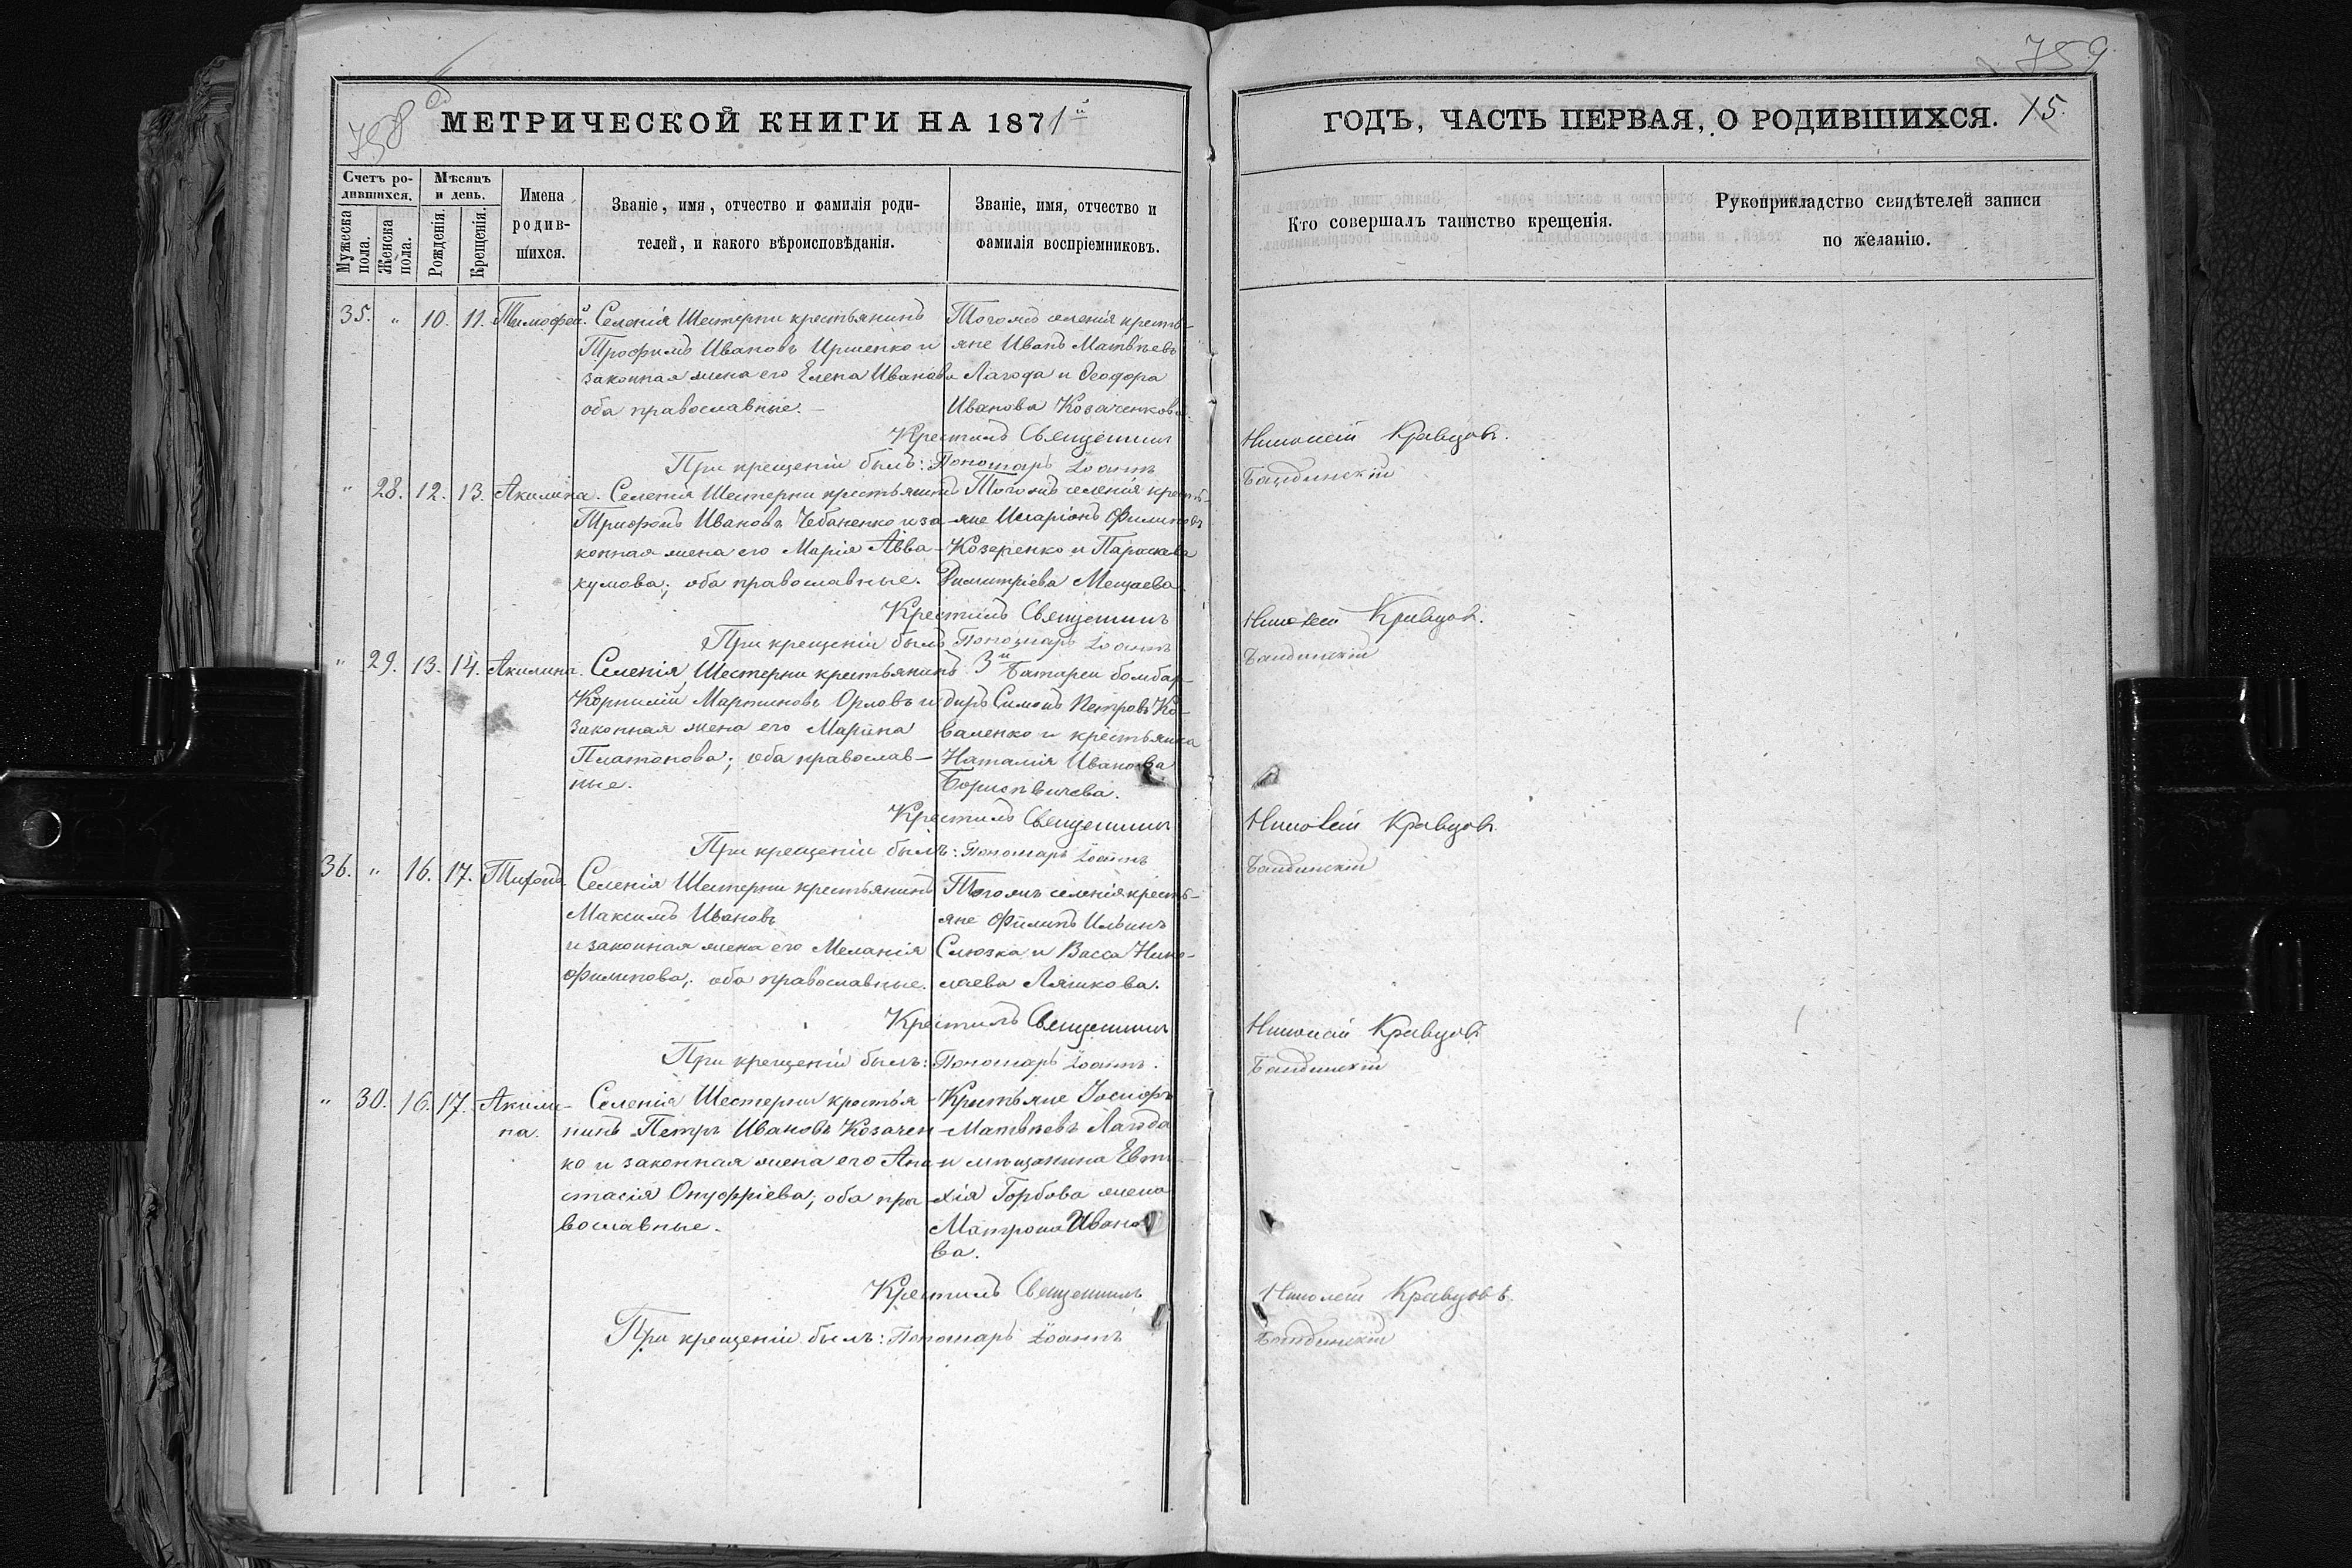 758 об
МЕТРИЧЕСКОЙ КНИГИ НА 1871й
Счетъ родившихся.
Мужеска пола.
Женска пола.
Мѣсяцъ и день.
Рожденія.
Крещенія.
Имена родив-
шихся.
Званіе, имя, отчество и фамилія роди-
телей, и какого вѣроисповѣданія.
Званіе, имя, отчество и
фамилія воспріемниковъ.
35. " 10. 11. Тимофей.
Селенія Шестерни крестьянинъ
Трофимъ Ивановъ и
законная жена его Елена Иванова
оба православные.
Тогожъ селенія кресть-
яне Иванъ Матвѣевъ
Лагода и Ѳеодора
Иванова Козаченкова.
Крестилъ Священникъ
При крещеніи былъ: Пономарь Іоаннъ
" 28. 12. 13. Акилина.
Селенія Шестерни крестьянинъ
Трифонъ Ивановъ Чебаненко и за-
конная жена его Марія Авва-
кумова; оба православные.
Тогожъ селенія кресть-
яне Иларіонъ Филиповъ
Козеренко и Параскева
Димитріева Мещаева
Крестилъ Священникъ
При крещеніи былъ Пономарь Іоаннъ
" 29. 13. 14. Акилина.
Селенія Шестерни крестьянинъ
Корнилій Мартиновъ Орловъ и
законная жена его Марина
Платонова; оба православ-
ные.
3й Батареи бомбар-
диръ Симонъ Петровъ Ко-
валенко и крестьянка
Наталія Иванова
Борисѣвичева.
Крестилъ Священникъ
При крещеніи былъ: Пономарь Іоаннъ
36. " 16. 17. Тихонъ.
Селенія Шестерни крестьянинъ
Максимъ Ивановъ
и законная жена его Меланія
Филипова; оба православные.
Тогожъ селенія кресть-
яне Филипъ Ильинъ
Слюзка и Васса Нико-
лаева Ляшкова.
Крестилъ Священникъ
При крещеніи былъ: Пономарь Іоаннъ.
" 30. 16. 17. Акили-
на.
Селенія Шестерни крестья-
нинъ Петръ Ивановъ Козачен-
ко и законная жена его Ана-
стасія Онуфріева; оба пра-
вославные.
Крестьяне Іосифъ
Матвѣевъ Лагода
и мѣщанина Евти-
хія Горбова жена
Матрона Ивано-
ва.
Крестилъ Священникъ
При крещеніи былъ: Пономарь Іоаннъ
759
ГОДЪ, ЧАСТЬ ПЕРВАЯ, О РОДИВШИХСЯ. 15.
Кто совершалъ таинство крещенія.
Рукоприкладство свидѣтелей записи
по желанію.
Николай Кравцовъ.
Бандинскій
Николай Кравцовъ.
Бандинскій
Николай Кравцовъ
Бандинскій
Николай Кравцовъ
Бандинскій
Николай Кравцовъ.
Бандинскій